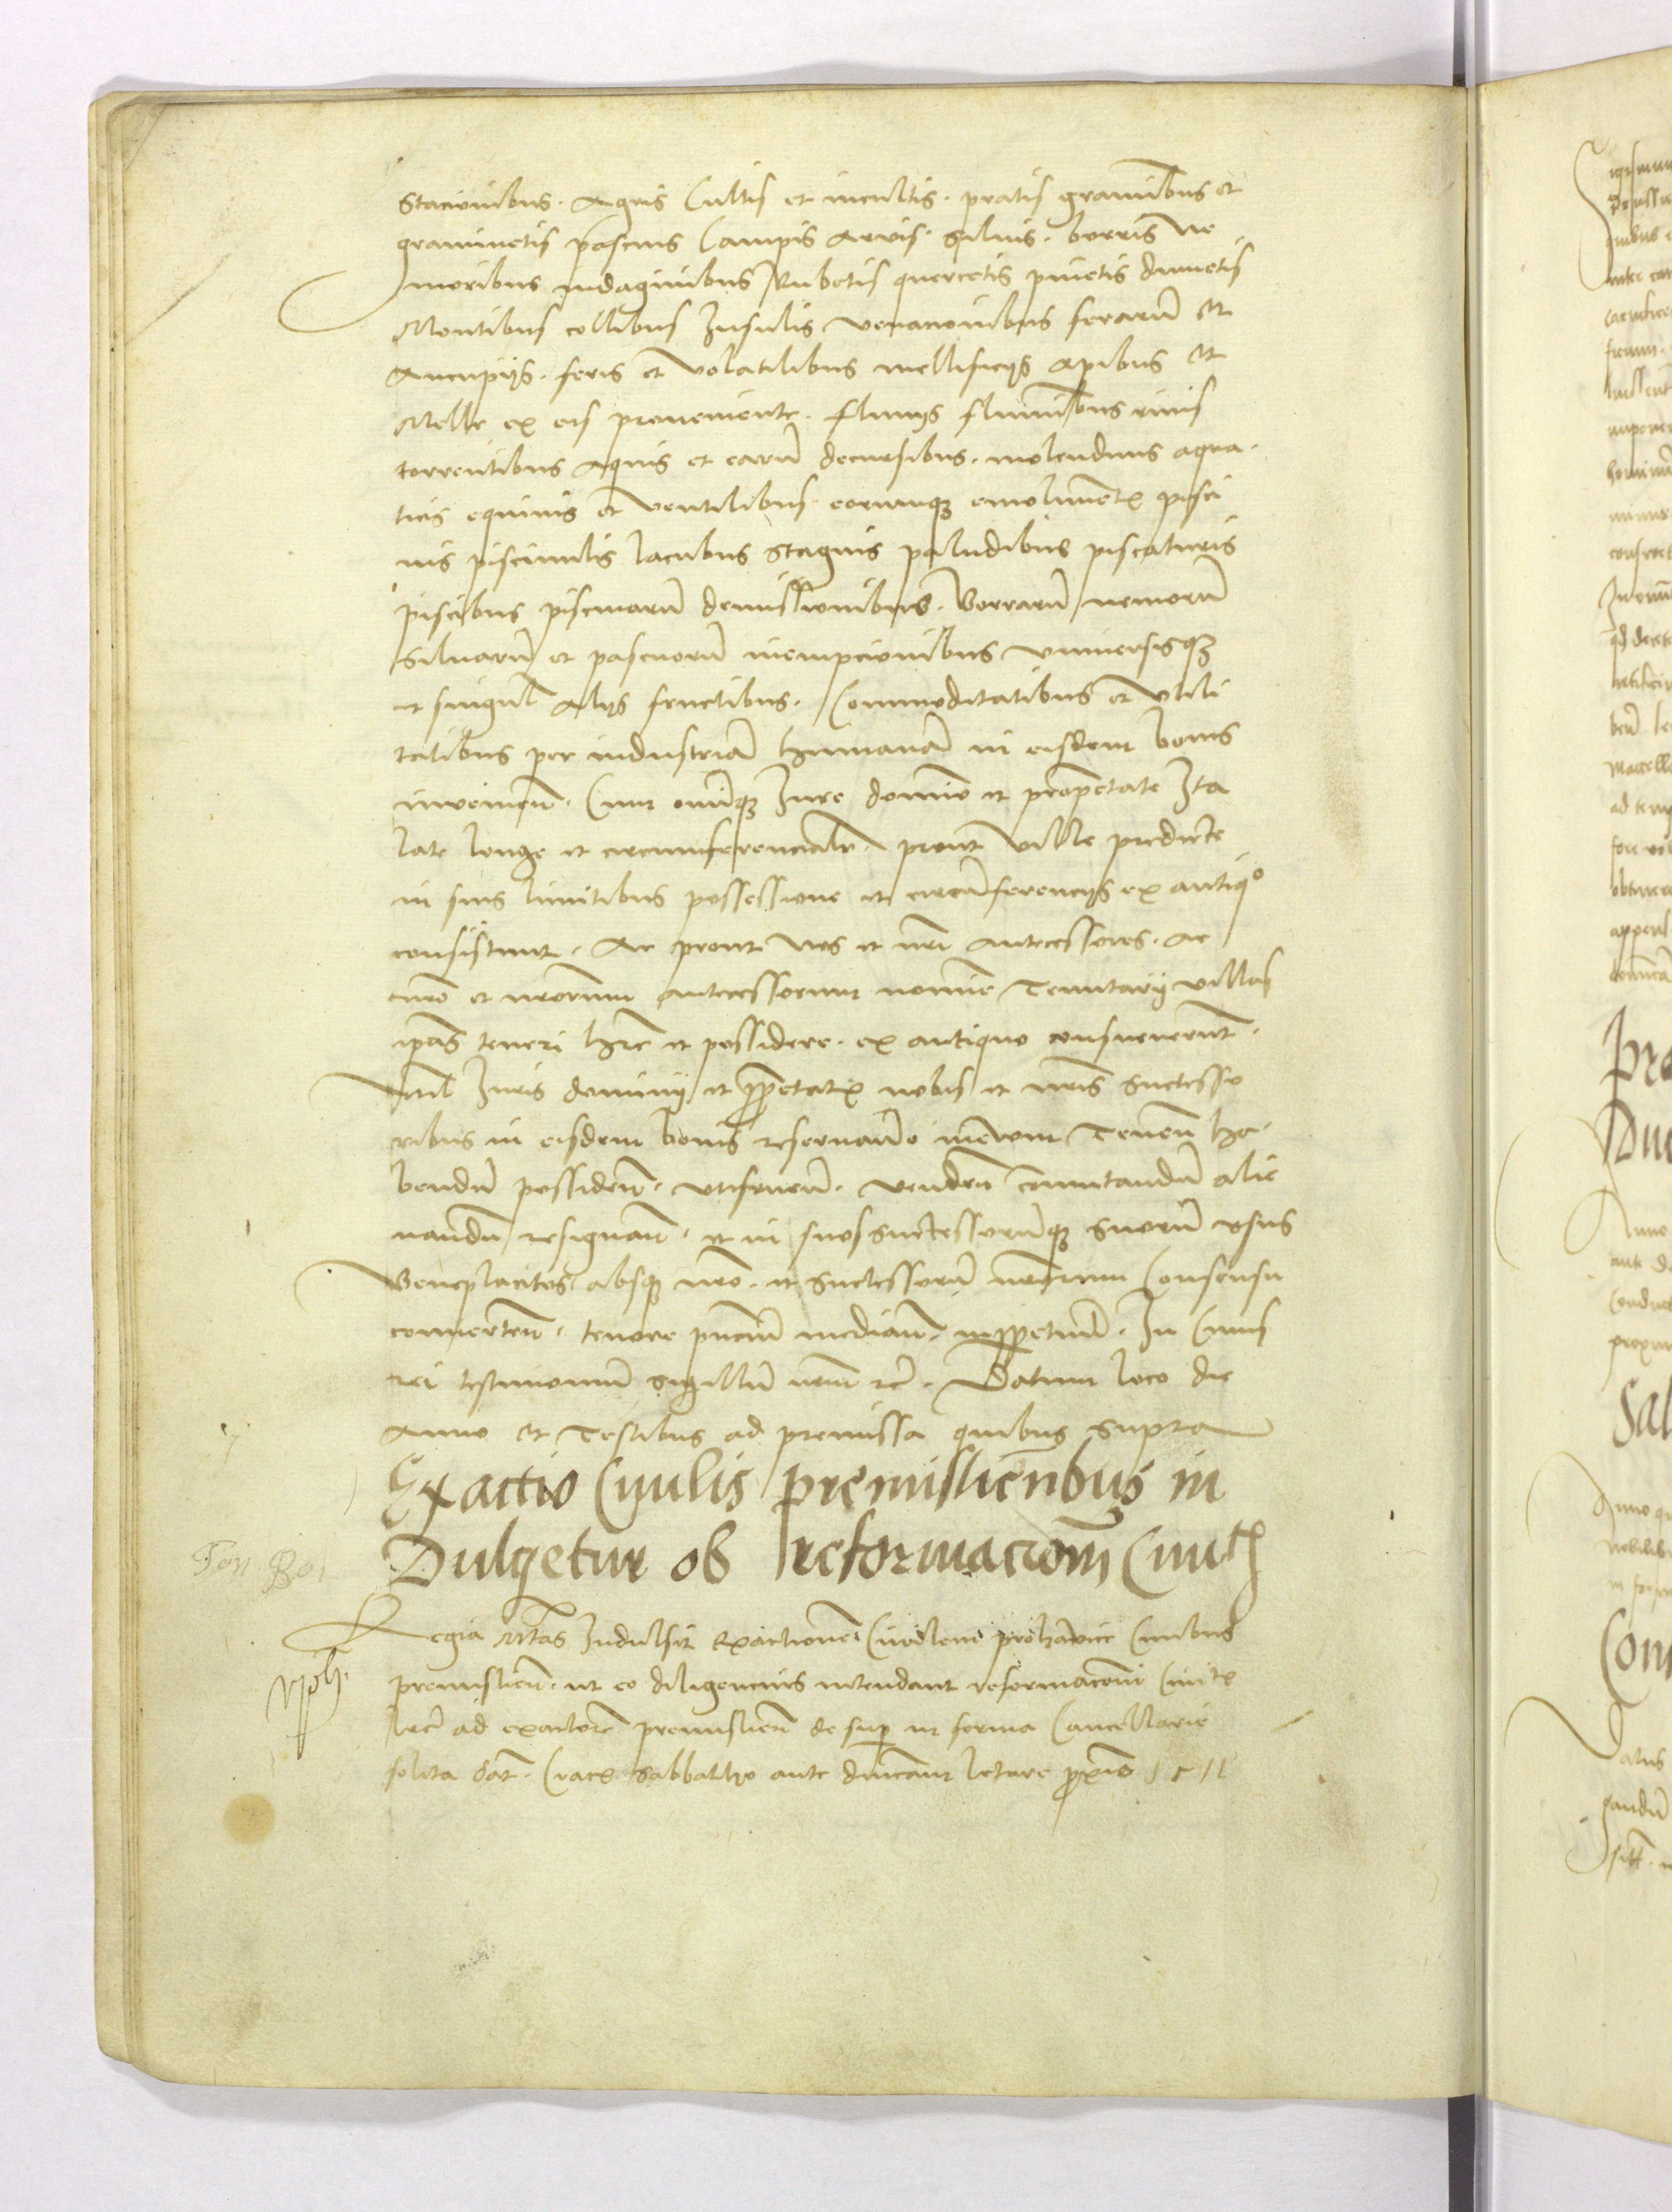 stacionibus. Agris Cultis et incultis. pratis graminibus et
graminetis pascuis Campis Arvis. siluis. borris ne
moribus indaginibus Rubetis quercetis pinetis dumetis
Montibus collibus Insulis venacionibus ferarū et
Aucupijs. feris et volatilibus mellificijs apibus et
Melle ex eis proueniente. fluuijs fluminibus riuis
torrentibus Aquis et earū decursibus. molendinis aqua-
ticis equinis et ventilibus eorumq; emolument pisci
nis piscinulis lacubus stagnis paludibus piscaturis
piscibus piscinarū demissionibus. Borrarū nemorū
Siluarū et pascuorū inempcionibus vniuersisq;
et singul Alijs fructibus. Commoditatibus et vtili
tatibus per industriā humanā in eisdem bonis
inuenien. Cum omniq; Iure dominio et proprietate Ita
late longe et circumferencialr prout ville predicte
in suis limitibus possessione et circūferencijs ex antiqo
consistunt. Ac prout nos et nri antecessores. ac
nro et nrorum antecessorum nomine Tenutarij villas
ipas teneri hre et possidere. ex antiquo consueuerunt.
Nil Iuris dominij et prpetat nobis et nris successo
ribus in eisdem bonis reseruando Tenen ha-
bendū possiden. vtifruen. venden comutandū alie
nandū resignan. et in suos successorūq; suorū vsus
Beneplacitos absq; nro. et successorū nrorum Consensu
conuerten. tenore pncium median. inpperetuū. In Cuius
rei testimoniū sigillū nrm rc. Datum loco die
Anno et Testibus ad premissa quibus supra
Exactio Ciuilis premisliensibus in
Dulgetur ob reformacionem Ciuit
Regia Mtas Indulsit Exactionem Ciuilem Ciuibus
premislien. ut eo diligencius intendant reformacioni Ciuit
lre ad exactorē premislien de sup in forma Cancellarie
solita dat. Crac sabbatho ante dnicam letare proximo